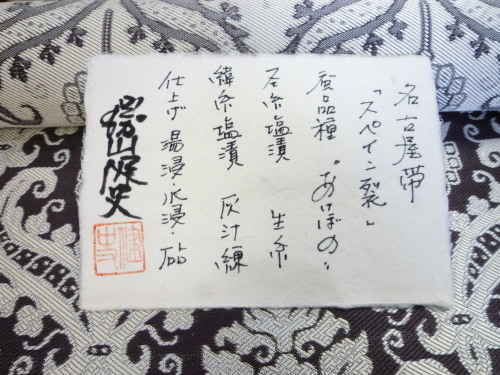 名古屋帯
「スペイン裂」
蚕品種 "あけぼの"
圣糸塩漬 生糸
緯糸塩漬 灰汁練
仕上げ 湯浸・水浸・砧
勝山健史
健史